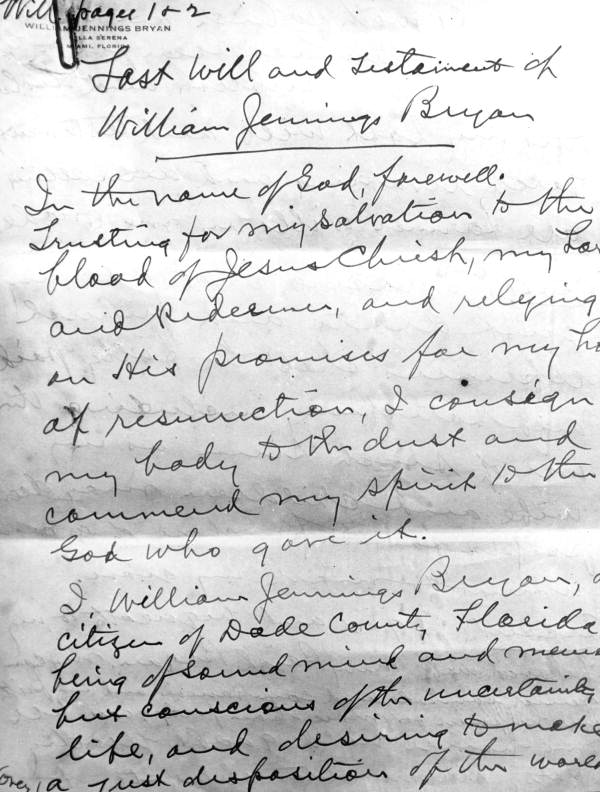 Will, pages 1 & 2
WILLIAM JENNINGS BRYAN
VILLA SERENA
MIAMI, FLORIDA
Last Will and Testament of
William Jennings Bryan
In the name of God, farewell.
Trusting for my salvation to the
blood of Jesus Christ, my Lor
and Redeemer, and relying
on His promises for my ho
of resurrection, I consign
my body to the dust and
commend my spirit to the
God who gave it.
I, William Jennings Bryan, a
citizen of Dade County, Florida
being of sound mind and memo
but conscious of the uncertainty
life, and desiring to make
a just disposition of the world